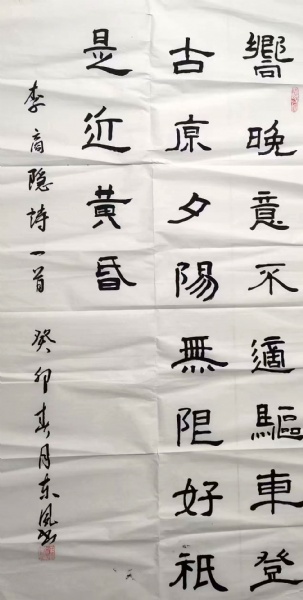 嚮晚意不適驅車登
古原夕陽無限好祇
是近黃昏
李商隐詩一首 癸卯春月东風书